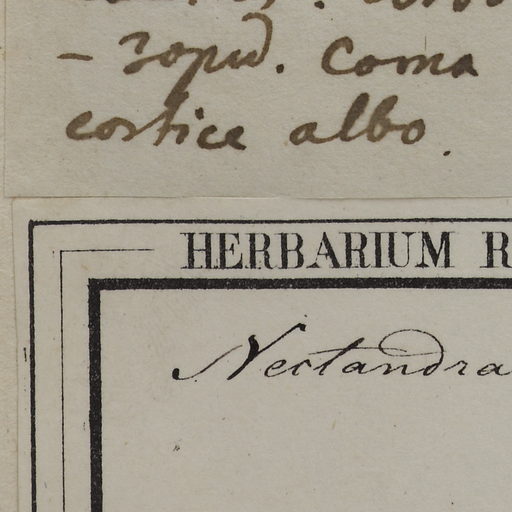 - 30 pid. Coma
cortice albo.
HERBARIUM R
Nectandra